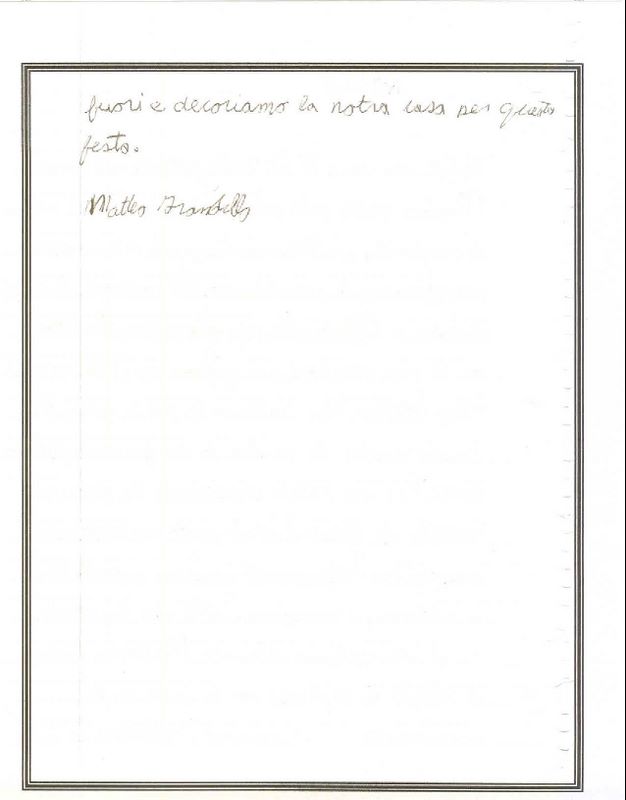 fuori e decoriamo la notra casa per questa
festa.
Matteo